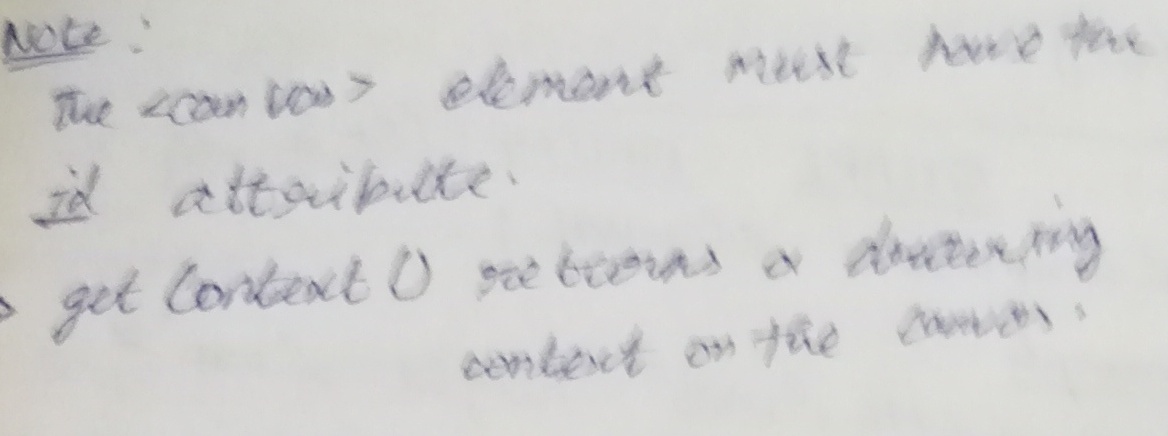 Note :
The <canvas> element must have the
id attribute.
getContext() returns a drawing
context on the canvas.